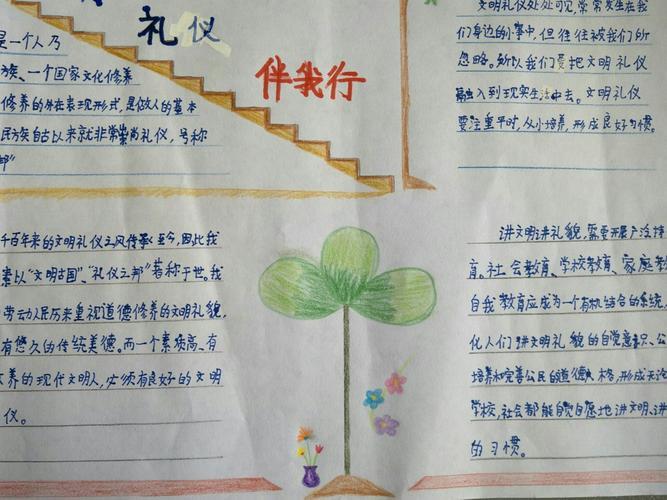 礼仪
伴我行
是一个人乃
族、一个国家文化修养
修养的外在表现形式,是做人的基本
民族自古以来就非常崇尚礼仪,号称
邦"
文明礼仪处处可见,常常发生在我
们身边的小事中,但往往被我们所
忽略。所以我们要把文明礼仪
融入到现实生活中去。文明礼仪
要注重平时,从小培养,形成良好习惯。
千百年来的文明礼仪之风传承至今,因此我
素以"文明古国"、"礼仪之邦"著称于世。我
劳动人民历来重视道德修养的文明礼貌,
有悠久的传统美德。而一个素质高、有
养的现代文明人,必须有良好的文明
仪。
讲文明讲礼貌,需要开展广泛
育。社会教育、学校教育、家庭
自我教育应成为一个有机结合的系统
化人们讲文明礼貌的自觉意识、公
培养和完善公民的道德人格,形成无论
学校,社会都能自觉自愿地讲文明、讲
的习惯。